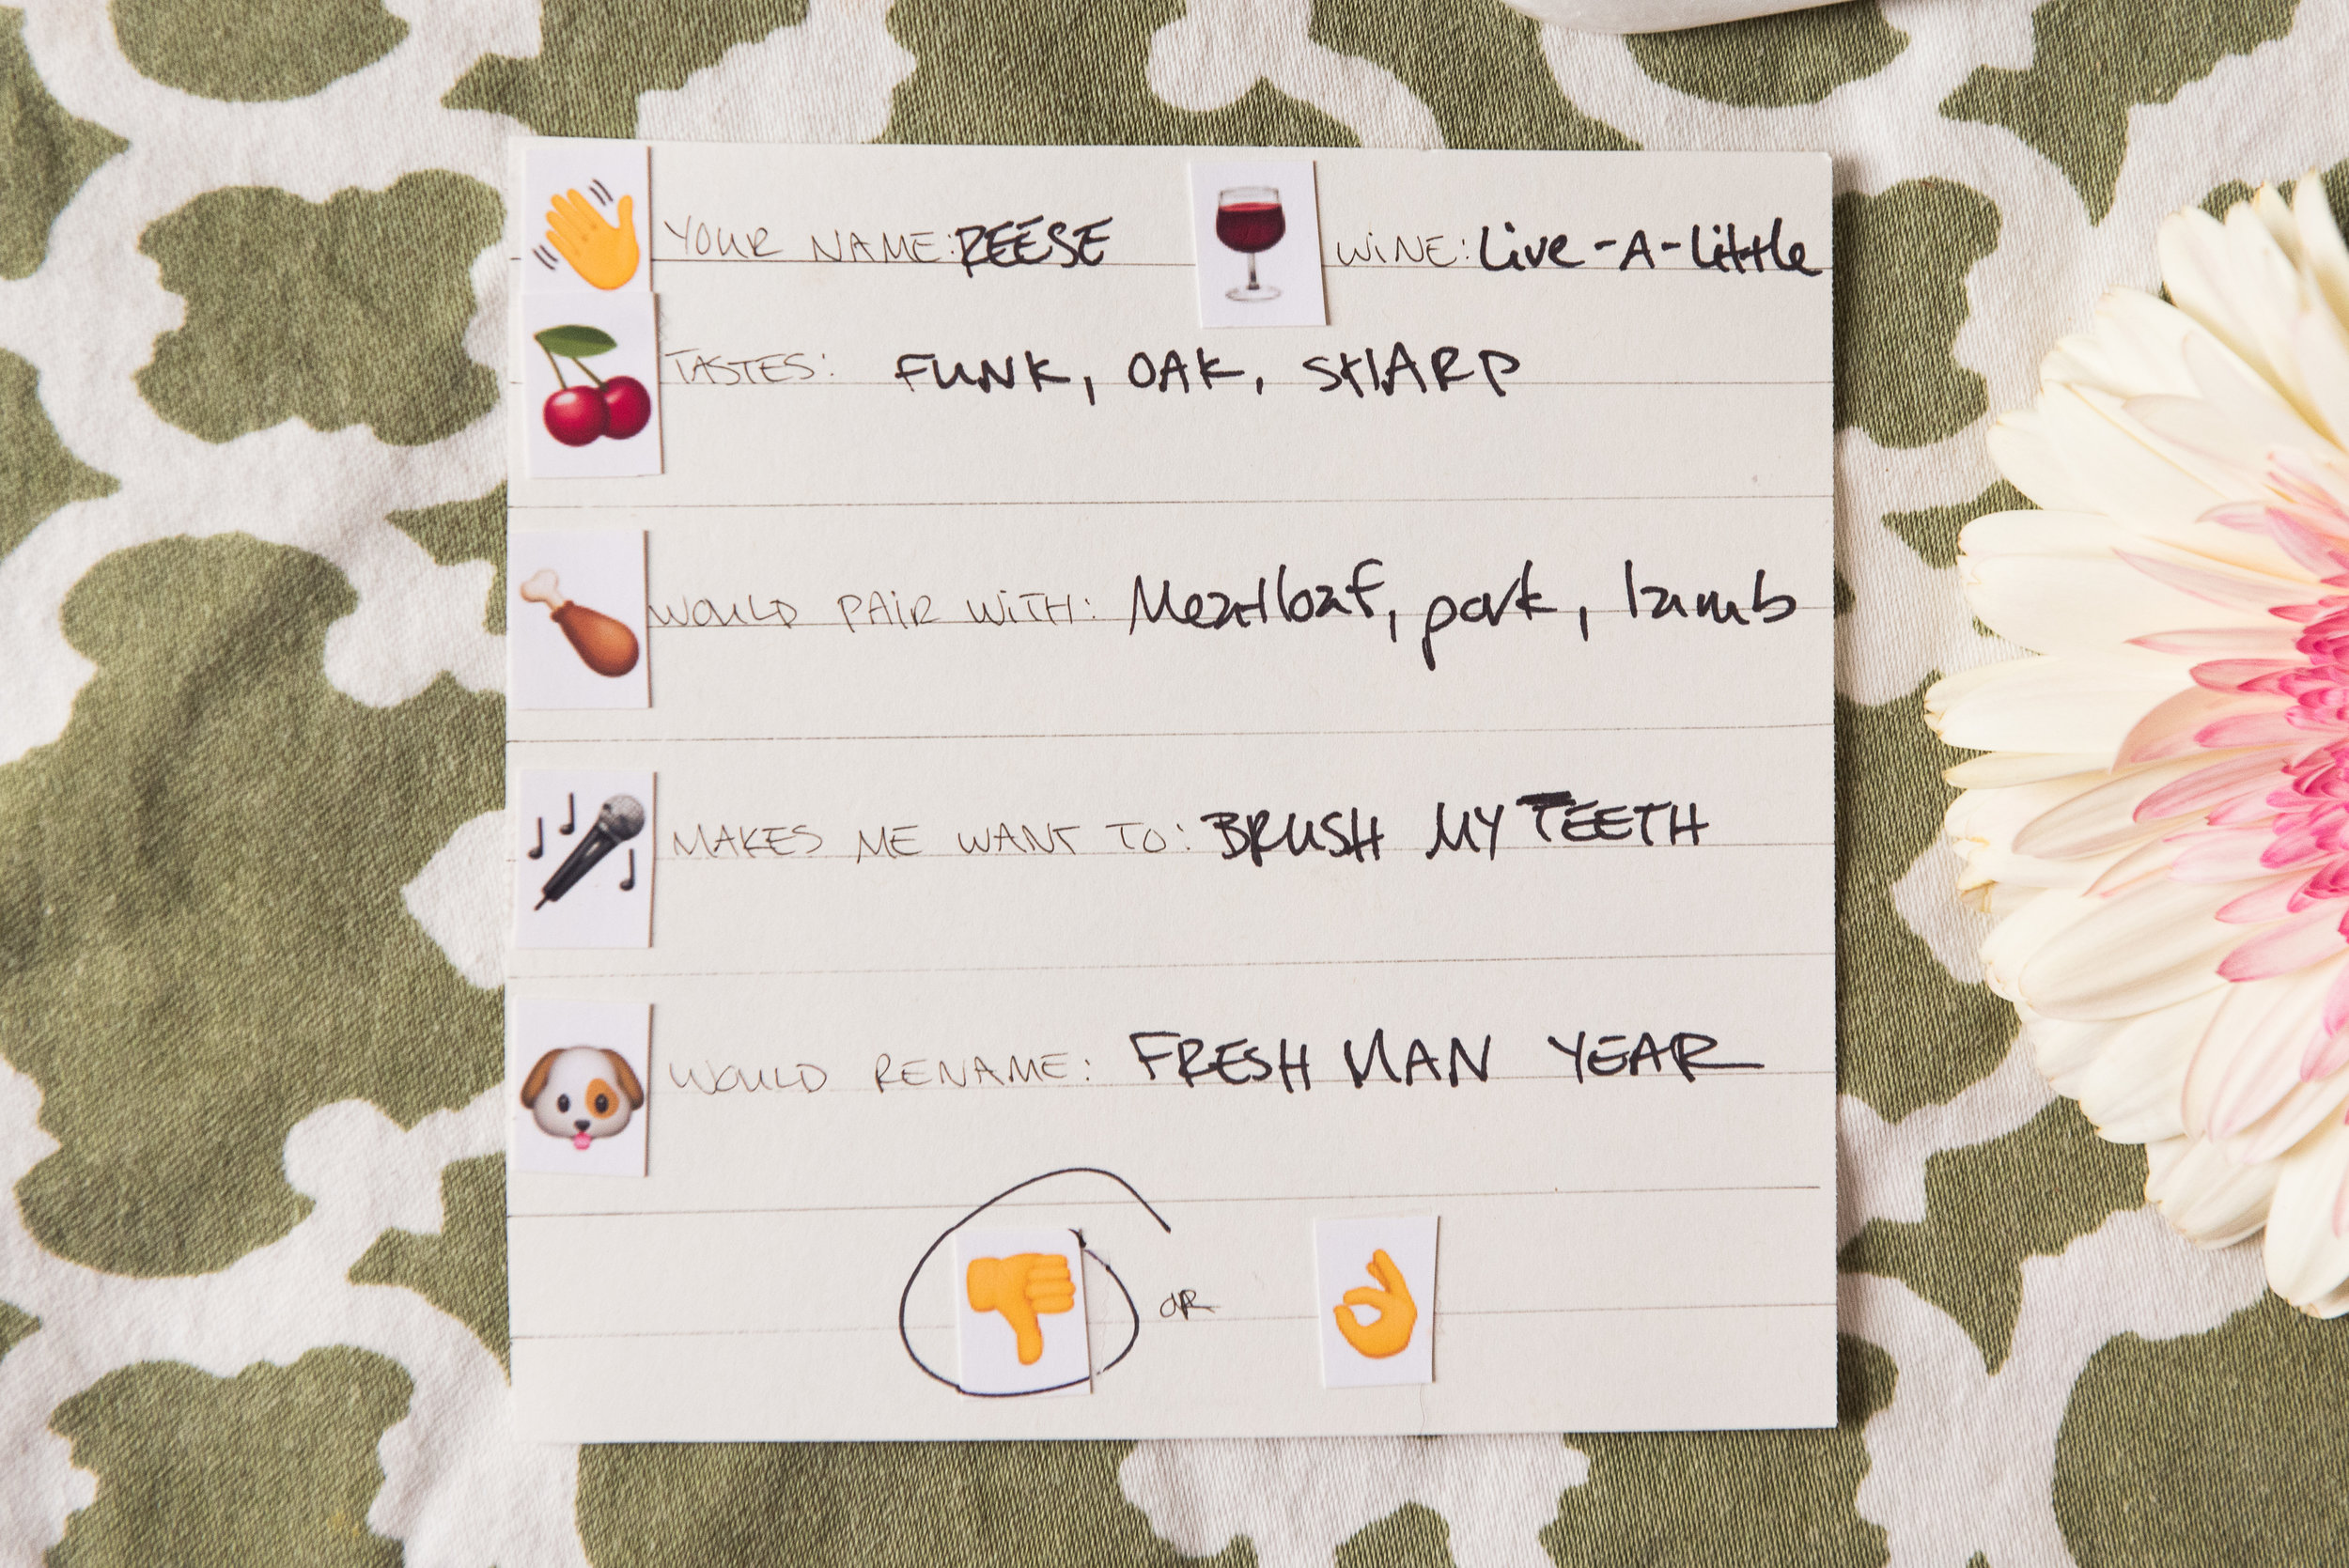 YOUR NAME: REESE WINE: Live-A-Little
TASTES: FUNK, OAK, SHARP
WOULD PAIR WITH: Meatloaf, pork, lamb
MAKES ME WANT TO: BRUSH MY TEETH
WOULD RENAME: FRESHMAN YEAR
OR